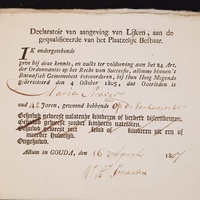 Declaratoir van aangeving van Lijken, aan de
gequalificeerde van het Plaatzelyk Bestuur.
IK ondergetekende
geve bij deze kennis, en zulks ter voldoening aan het 24 Art.
der Ordonnantie op het Recht van Successie, alomme binnen 't
Bataafsch Gemeenebest intevorderen, bij Hun Hoog Mogende
gearresteerd den 4 Oktober 1805, dat Overleden is
Maria
oud 42 Jaren, gewoond hebbende Op de
Gehuwd geweest nalatende kinderen of verdere bijstervelingen.
Gehuwd geweest zonder kinderen natelaten.
Gehuwd geweest met kind of kinderen uit een of
meerder Huwelijk.
Ongehuwd.
Actum in GOUDA, den 16 April 1807